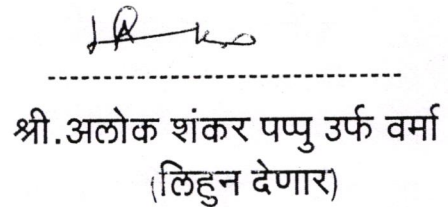 श्री.अलोक शंकर पप्पु उर्फ वर्मा
(लिहुन देणार)